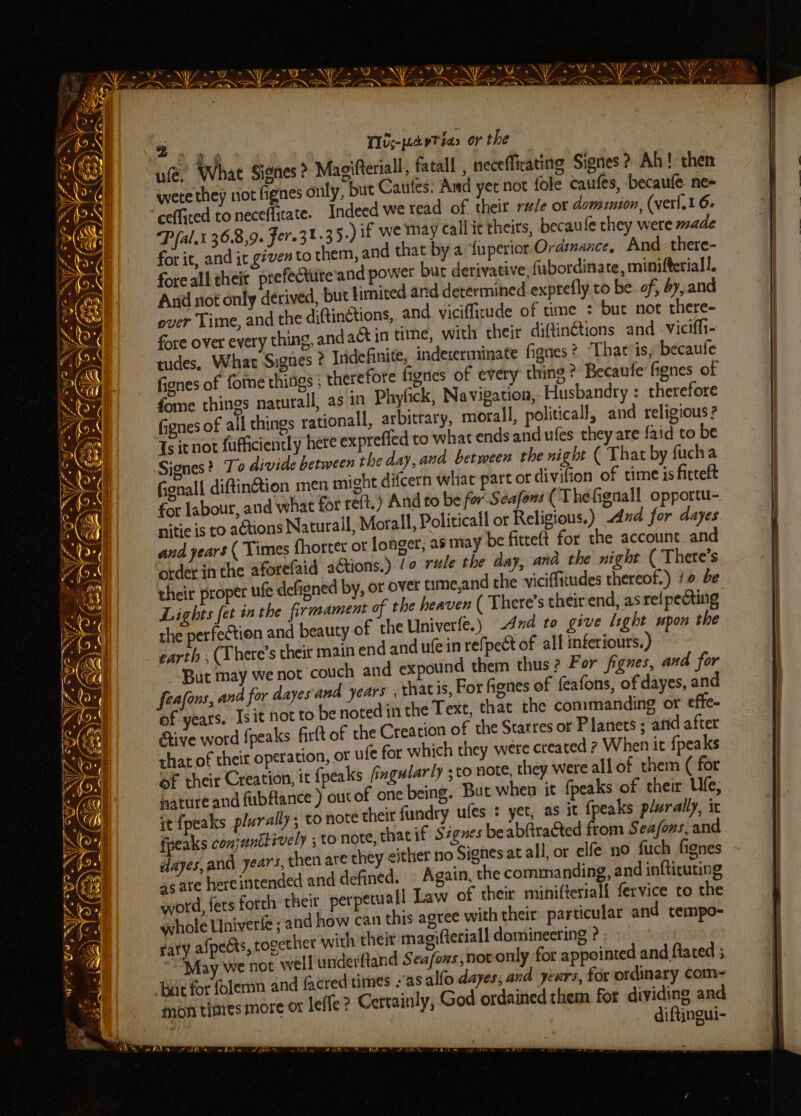 2 Πῦς-μαντία, or the
uſe. What Signes? Magiſteriall, fatall, neceſſitating Signes? Ah! then
were they not ſignes only, but Cauſes: And yet not ſole cauſes, becauſe ne-
ceſſited to neceſſitate. Indeed we read of their rule or dominion, (verſ.16.
Pſal.136.8,9. Jer.31.35.) if we may call it theirs, becauſe they were made
for it, and it given to them, and that by a ſuperior Ordinance. And there-
fore all their prefecture and power but derivative, ſubordinate, miniſteriall.
And not only derived, but limited and determined expreſly to be of, by, and
over Time, and the diſtinctions, and viciſſitude of time: but not there-
fore over every thing, and act in time, with their diſtinctions and viciſſi-
tudes. What Signes? Indefinite, indeterminate ſignes? That is, becauſe
ſignes of ſome things; therefore ſignes of every thing? Becauſe ſignes of
ſome things naturall, as in Phyſick, Navigation, Husbandry: therefore
ſignes of all things rationall, arbitrary, morall, politicall, and religious?
Is it not ſufficiently here expreſſed to what ends and uſes they are ſaid to be
Signes? To divide between the day, and between the night (That by ſuch a
ſignall diſtinction men might diſcern what part or diviſion of time is fitteſt
for labour, and what for reſt.) And to be for Seaſons (The ſignall opportu-
nitie is to actions Naturall, Morall, Politicall or Religious.) And for dayes
and years (Times ſhorter or longer, as may be fitteſt for the account and
order in the aforeſaid actions.) to rule the day, and the night (There's
their proper uſe deſigned by, or over time, and the viciſſitudes thereof.) to be
Lights ſet in the firmament of the heaven (There's their end, as reſpecting
the perfection and beauty of the Univerſe.) And to give light upon the
earth; (There's their main end and uſe in reſpect of all inferiours.)
But may we not couch and expound them thus? For ſignes, and for
ſeaſons, and for dayes and years, that is, For ſignes of ſeaſons, of dayes, and
of years. Is it not to be noted in the Text, that the commanding or effe-
ctive word ſpeaks firſt of the Creation of the Starres or Planets; and after
that of their operation, or uſe for which they were created? When it ſpeaks
of their Creation, it ſpeaks ſingularly; to note, they were all of them (for
nature and ſubſtance) out of one being. But when it ſpeaks of their Uſe,
it ſpeaks plurally; to note their ſundry uſes: yet, as it ſpeaks plurally, it
ſpeaks conjunctively; to note, that if Signes be abſtracted from Seaſons, and
dayes, and years, then are they either no Signes at all, or elſe no ſuch ſignes
as are here intended and defined. Again, the commanding, and inſtituting
word, ſets forth their perpetuall Law of their miniſteriall ſervice to the
whole Univerſe; and how can this agree with their particular and tempo-
rary aſpects, together with their magiſteriall domineering?
May we not well underſtand Seaſons, not only for appointed and ſtated;
but for ſolemn and ſacred times: as alſo dayes, and years, for ordinary com-
mon times more or leſſe? Certainly, God ordained them for dividing and
diſtingui-